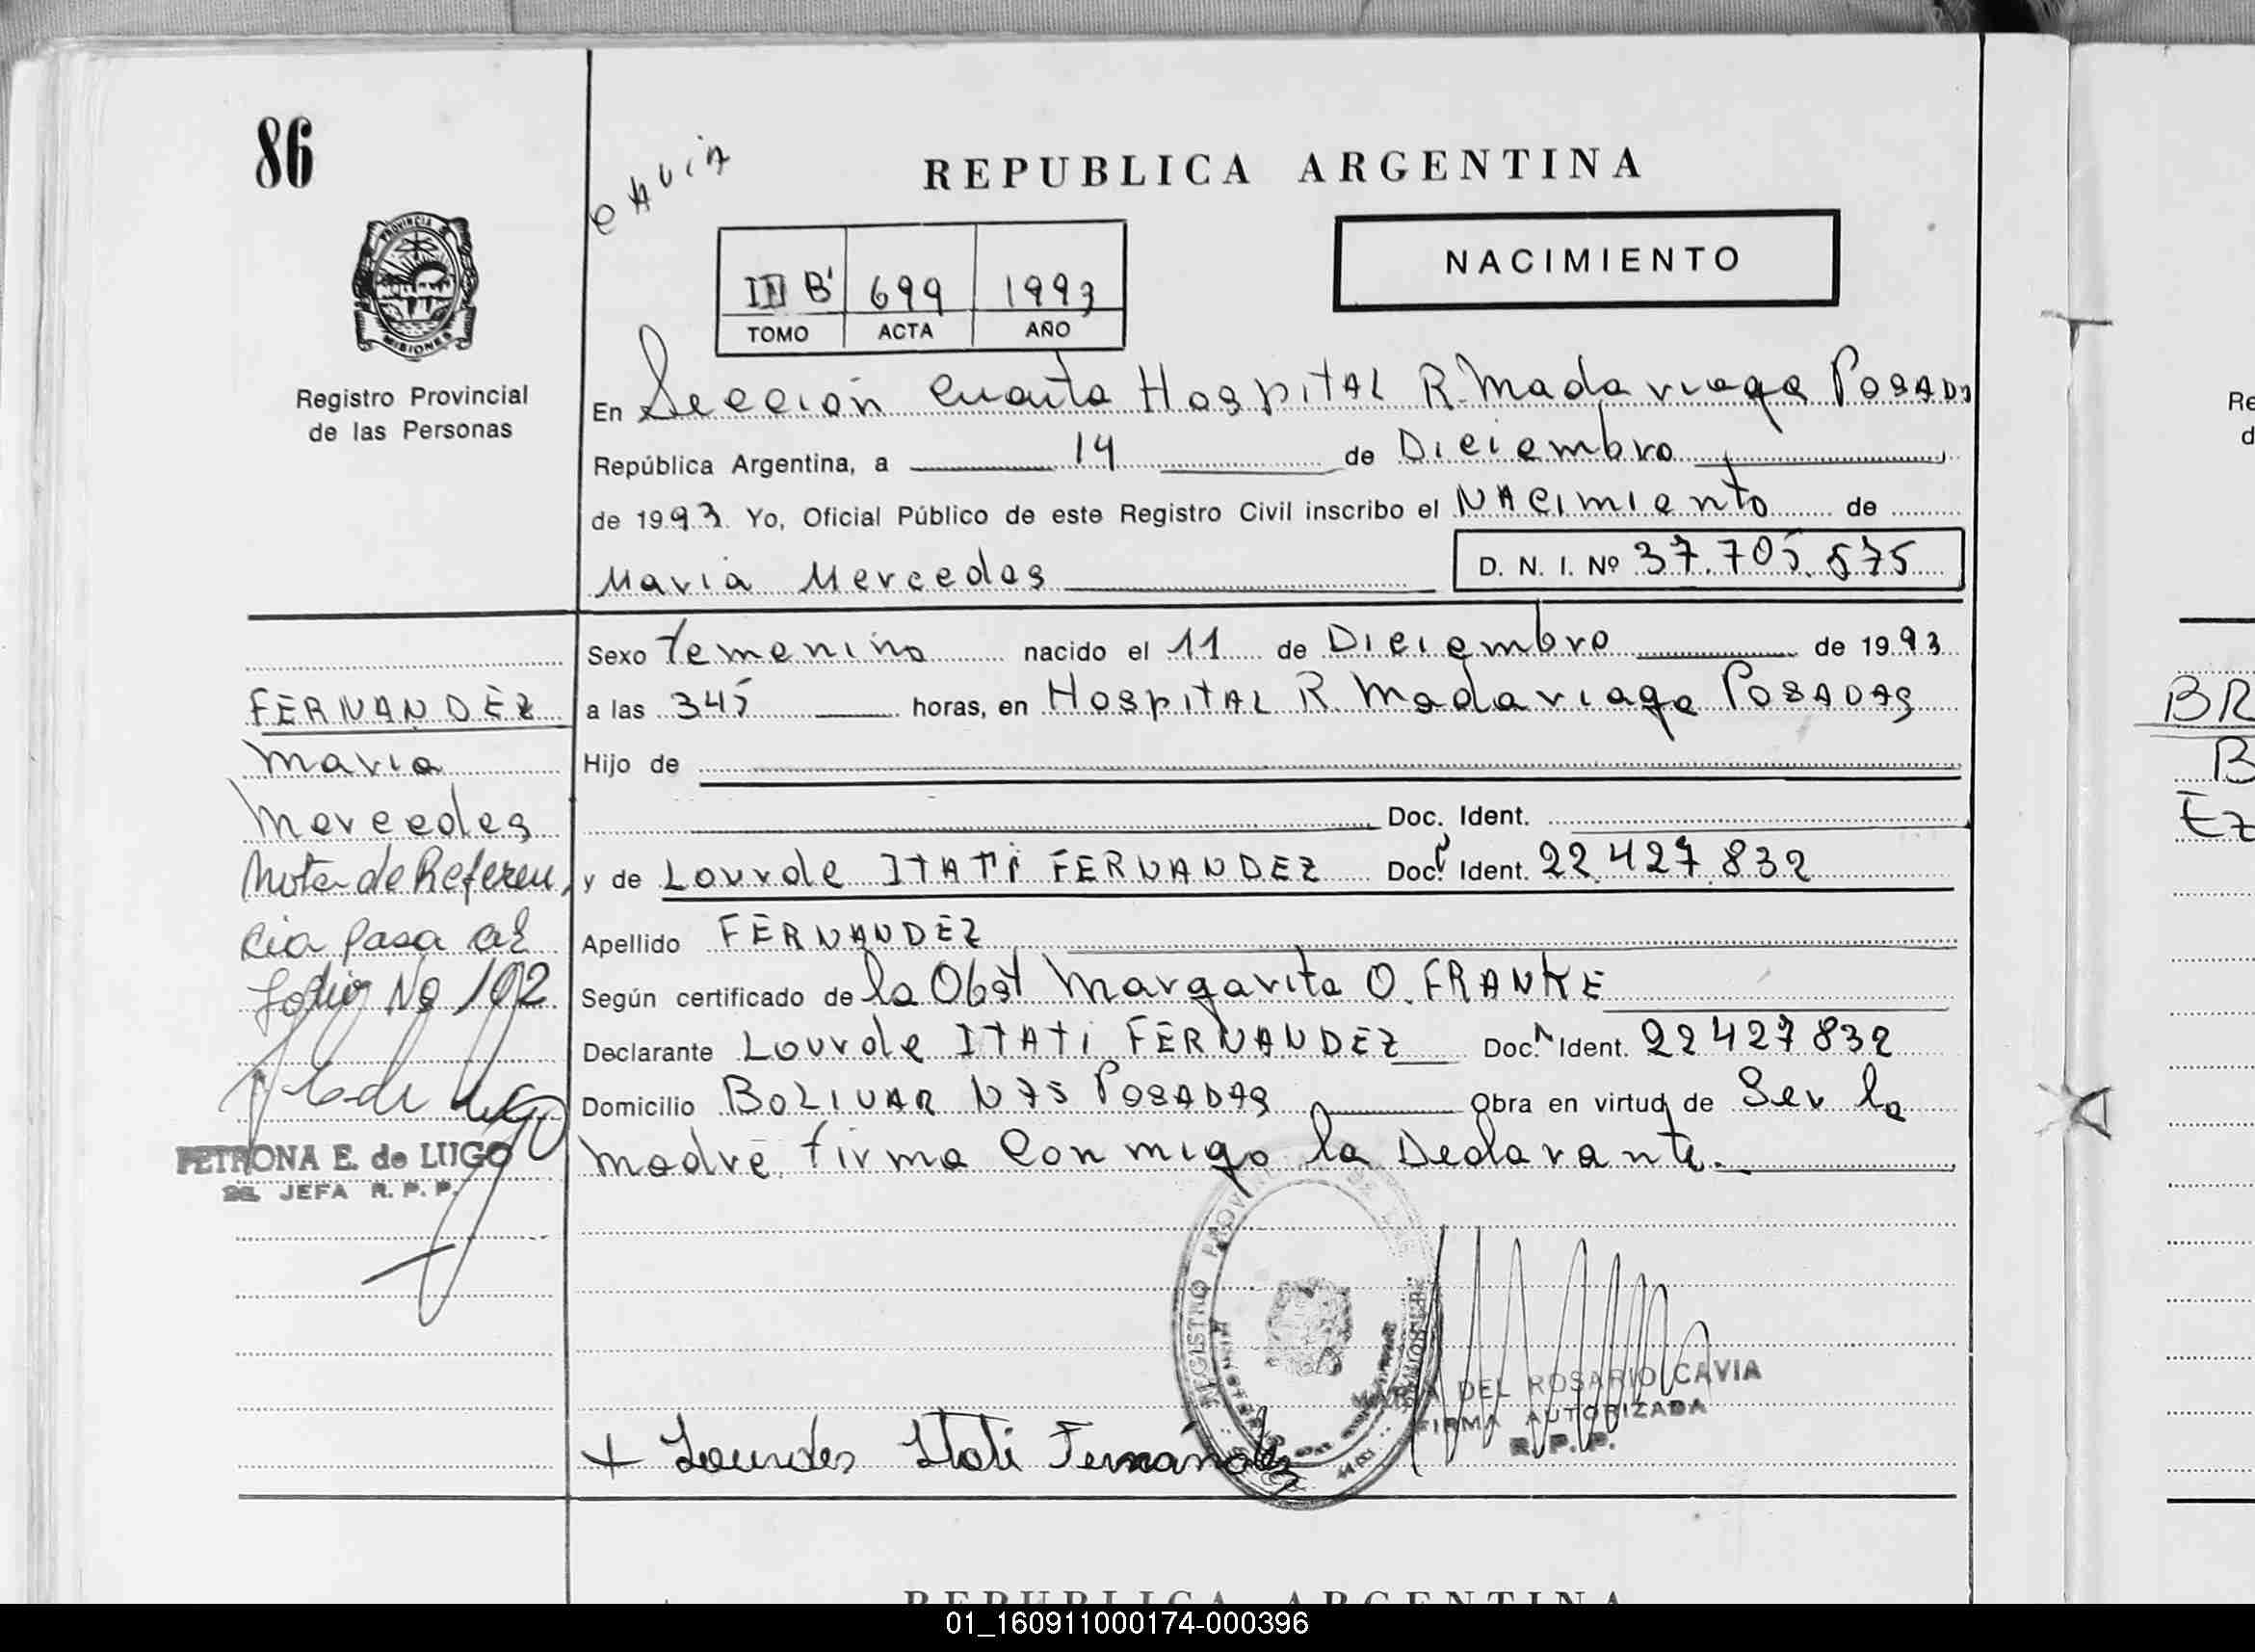 86
CAVIA
REPUBLICA ARGENTINA
NACIMIENTO
III B' 699 1993
TOMO ACTA AÑO
PROVINCIA DE
MISIONES
Registro Provincial
de las Personas
En Sección Cuarta Hospital R. Madariaga POSADAS
República Argentina, a 14 de Diciembre
de 1993 Yo, Oficial Público de este Registro Civil inscribo el NAcimiento de
Maria Mercedes D. N. I. Nº 37.705.575
Sexo Femenino nacido el 11 de Diciembre de 1993
a las 345 horas, en HospitAL R. Madariaga POSADAS
Hijo de
Doc. Ident.
y de Lourde ITATI FERNANDEZ Doc. Ident. 22.427.832
Apellido FERNANDEZ
Según certificado de la Obst Margarita O. FRANKE
Declarante Lourde ITATI FERNANDEZ Doc. Ident. 22427832
Domicilio BOLIVAR N 75 POSADAS Obra en virtud de Ser la
madre firma Conmigo la Declarante.
FERNANDEZ
Maria
Mercedes
Nota de Referen
cia pasa al
folio No 102
PETRONA E. de LUGO
JEFA R. P. P.
REGISTRO PROVINCIAL DE LAS
MISIONES
MARIA DEL ROSARIO CAVIA
FIRMA AUTORIZADA
R. P. P.
+ Lourdes Itati Fernández
REPUBLICA ARGENTINA
Re
d
BR
B
Ez
01_160911000174-000396